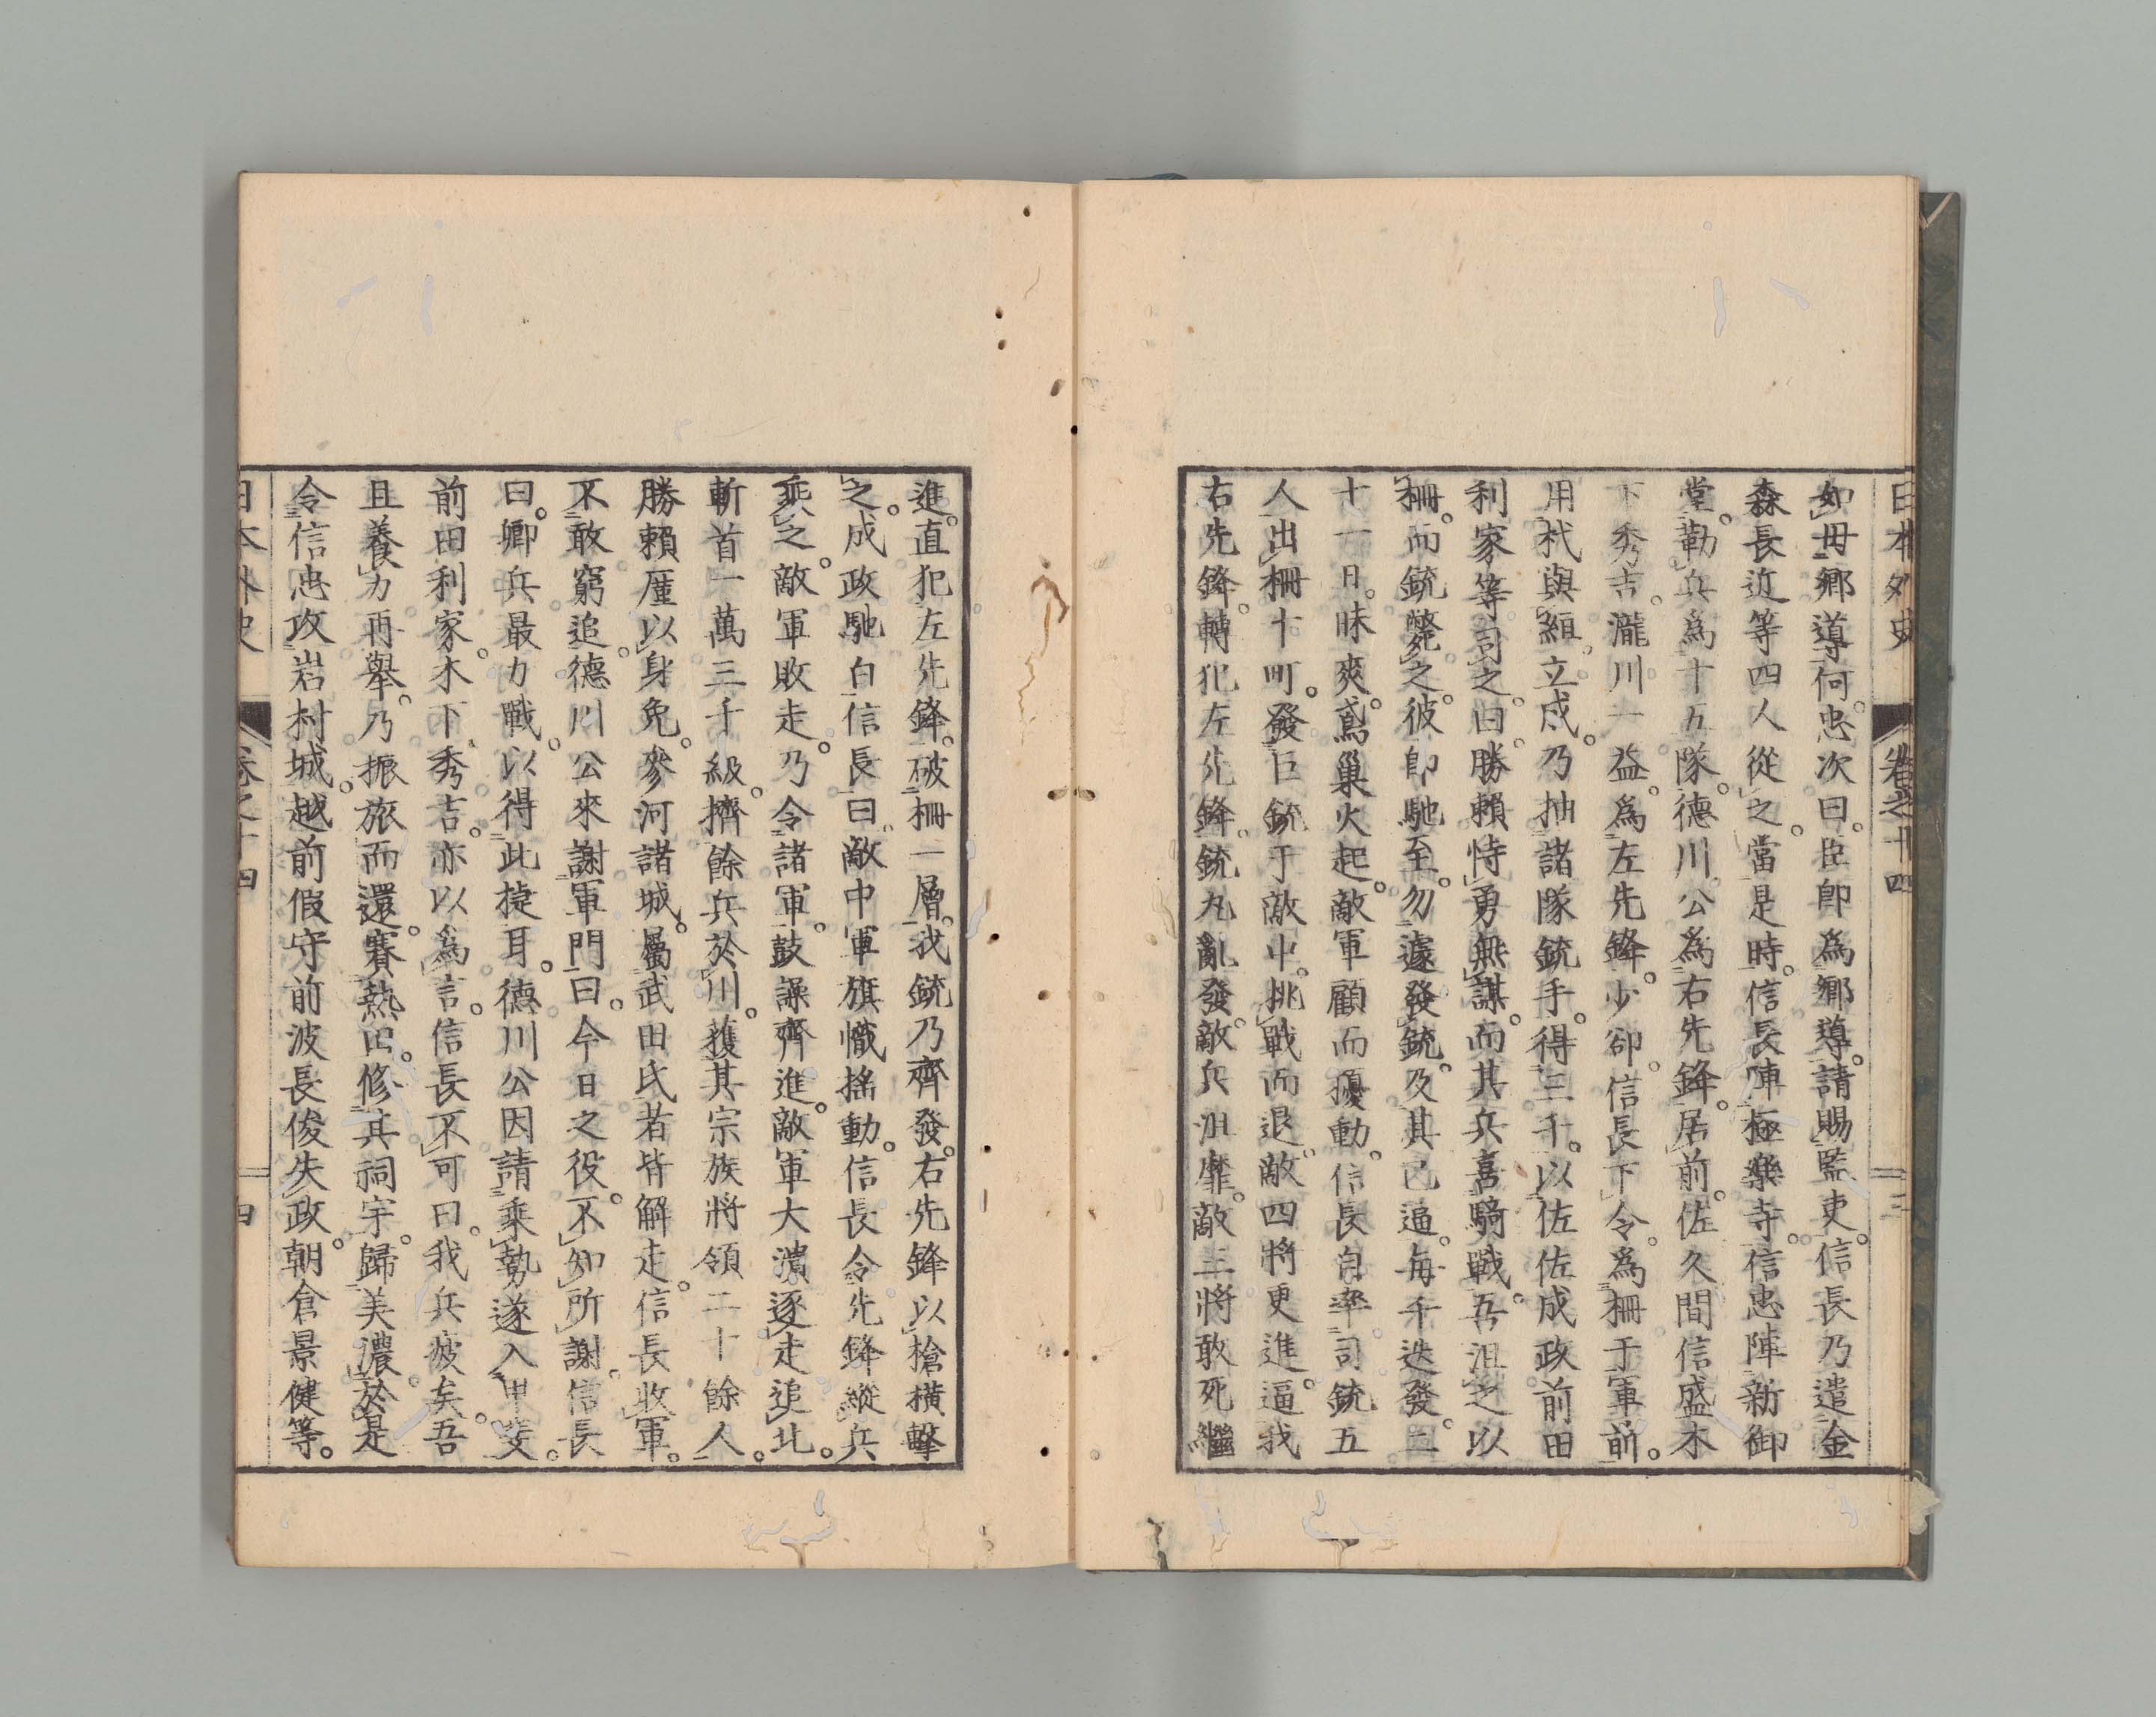 日本外史 卷之十四 三
如毋鄕導何。忠次曰。臣卽爲鄕導。請賜監吏。信長乃遣金
森長近等四人從之。當是時。信長陣極樂寺。信忠陣新御
堂。勒兵爲十五隊。德川公爲右先鋒。居前。佐久間信盛木
下秀吉。瀧川一益。爲左先鋒。少卻。信長下令。爲柵于軍前。
用杙與縆。立成。乃抽諸隊銃手。得三千。以佐佐成政前田
利家等司之。曰。勝賴恃勇無謀。而其兵喜騎戰。吾沮之以
柵。而銃斃之。彼卽馳至。勿遽發銃。及其已逼。每千迭發。二
十一日。昧爽。鳶巢火起。敵軍顧而擾動。信長自率司銃五
人出柵十町。發巨銃于敵中。挑戰而退。敵四將更進逼。我
右先鋒。轉犯左先鋒。銃丸亂發。敵兵沮靡。敵三將敢死繼
進。直犯左先鋒。破柵一層。我銃乃齊發。右先鋒以槍橫擊
之。成政馳白信長曰。敵中軍旗幟搖動。信長令先鋒縱兵
乘之。敵軍敗走。乃令諸軍。鼓譟齊進。敵軍大潰。逐走追北。
斬首一萬三千級。擠餘兵於川。獲其宗族將領二十餘人。
勝賴厪以身免。參河諸城。屬武田氏者皆解走。信長收軍。
不敢窮追。德川公來謝軍門曰。今日之役。不知所謝。信長
曰。卿兵最力戰。以得此捷耳。德川公因請乘勢遂入甲斐。
前田利家。木下秀吉。亦以爲言。信長不可曰。我兵疲矣。吾
且養力再擧。乃振旅而還。賽熱田。修其祠宇。歸美濃。於是
令信忠攻岩村城。越前假守前波長俊失政。朝倉景健等。
日本外史 卷之十四 四